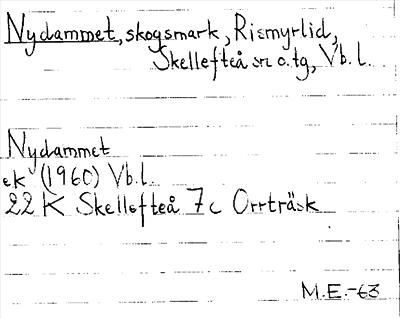 Nydammet, skogsmark, Rismyrlid,
Skellefteå sn o. tg, Vb. l.
Nydammet
ek (1960) Vb. l.
22 K Skellefteå 7c Orrträsk
M.E.-63